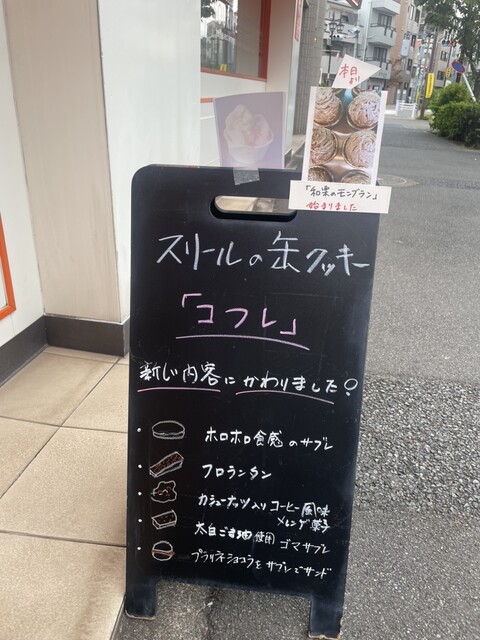 本日より
「和栗のモンブラン」
始まりました
スリールの缶クッキー
「コフレ」
新しい内容にかわりました!
・ホロホロ食感のサブレ
・フロランタン
・カシューナッツ入りコーヒー風味
メレンゲ菓子
・太白ごま油使用ゴマサブレ
・プラリネショコラをサブレでサンド